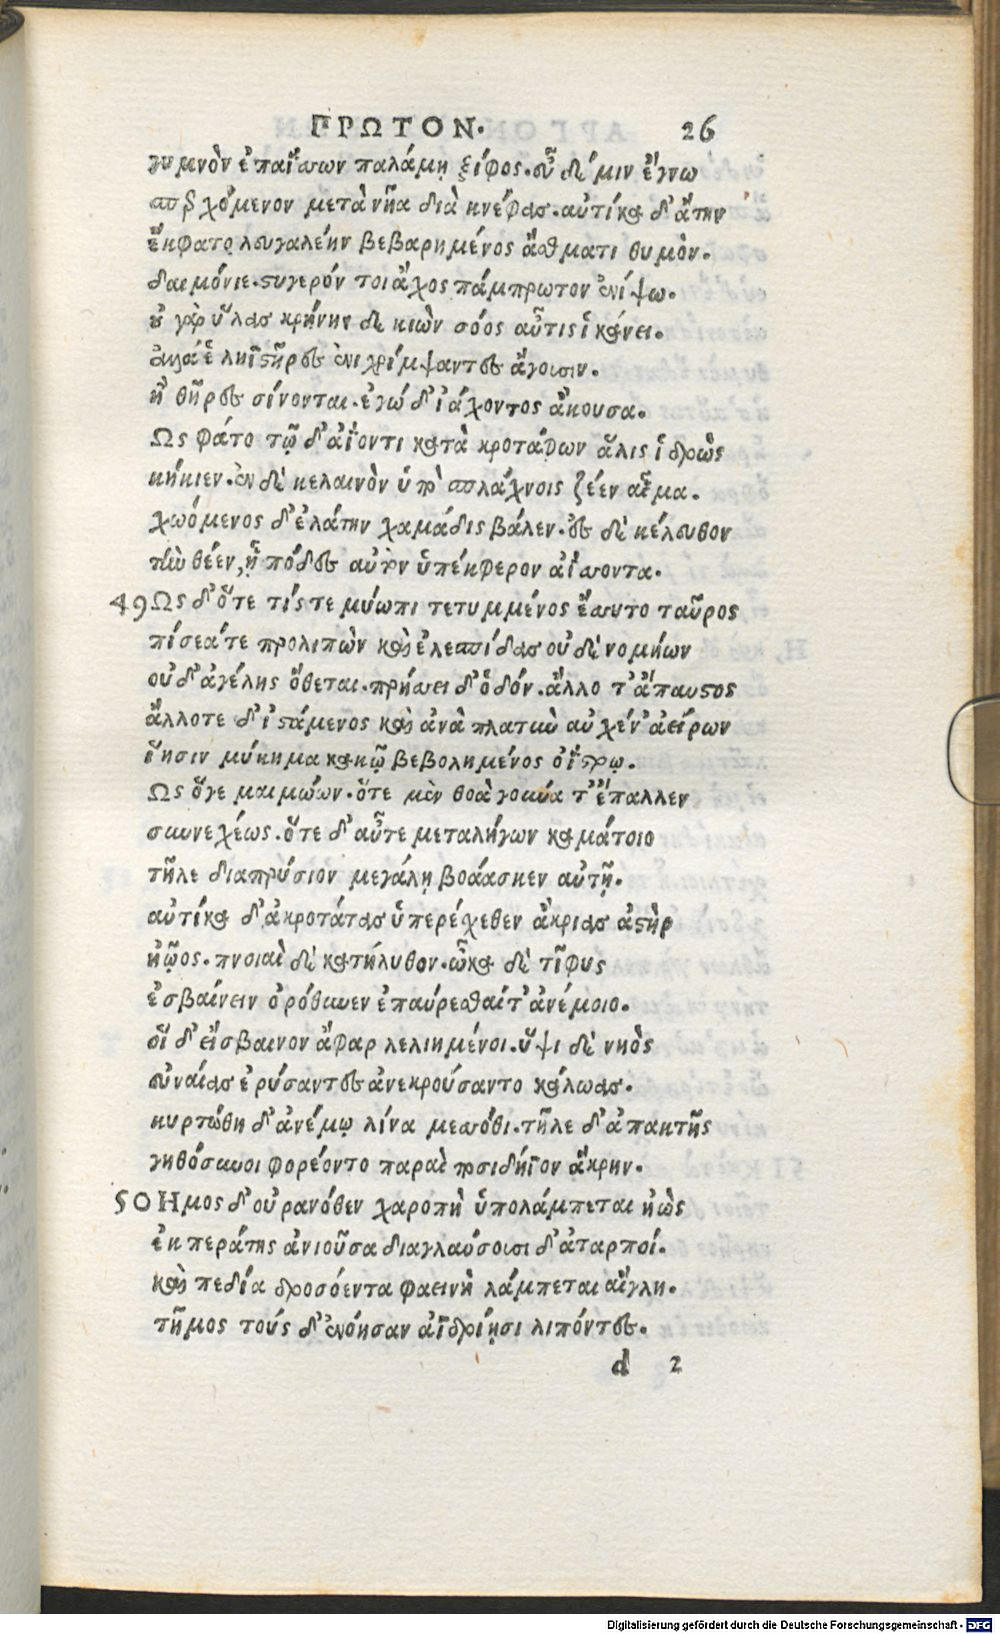 ΠΡΩΤΟΝ. 26
γυμνὸν ἐπαΐσσων παλάμῃ ξίφος. σὺ δέ μιν ἔγνω
σπερχόμενον μετὰ νῆα διὰ κνέφας. αὐτίκα δ' ἄτην
ἔκφατο λευγαλέην βεβαρημένος ἄσθματι θυμόν.
δαιμόνιε. στυγερόν τοι ἄχος πάμπρωτον ἐνίψω.
οὐ γὰρ ὕλας κρήνην δὲ κιὼν σόος αὖτις ἱκάνει.
ἀλλά ἑ ληϊστῆρες ἐνιχρίμψαντες ἄγουσιν.
ἢ θῆρες σίνονται. ἐγώ δ' ἰάχοντος ἄκουσα.
Ως φάτο τῷ δ' ἀΐοντι κατὰ κροτάφων ἅλις ἱδρὼς
κήκιεν. ἐν δὲ κελαινὸν ὑπὸ σπλάχνοις ζέεν αἷμα.
χωόμενος δ' ἐλάτην χαμάδις βάλεν. ἐς δὲ κέλευθον
τὴν θέεν, ᾗ πόδες αὐτὸν ὑπέκφερον ἀΐσσοντα.
49 Ως δ' ὅτε τίς τε μύωπι τετυμμένος ἔσσυτο ταῦρος
πίσεά τε προλιπὼν καὶ ἑλεσπίδας οὐδὲ νομήων
οὐδ' ἀγέλης ὄθεται. πρήσσει δ' ὁδόν. ἄλλο τ' ἄπαυστος
ἄλλοτε δ' ἱστάμενος καὶ ἀνὰ πλατὺν αὐχέν' ἀείρων
ἵησιν μύκημα κακῷ βεβολημένος οἴστρῳ.
Ως ὅγε μαιμώων. ὅτε μὲν θοὰ γούνα τ' ἔπαλλεν
συνεχέως. ὅτε δ' αὖτε μεταλήγων καμάτοιο
τῆλε διαπρύσιον μεγάλῃ βοάασκεν αὐτῇ.
αὐτίκα δ' ἀκροτάτας ὑπερέχεθεν ἄκριας ἀστὴρ
ἠῷος. πνοιαὶ δὲ κατήλυθον. ὦκα δὲ τῖφυς
ἐσβαίνειν ὀρόθυνεν ἐπαύρεσθαί τ' ἀνέμοιο.
οἵ δ' εἴσβαινον ἄφαρ λελιημένοι. ὕψι δὲ νηὸς
εὐναίας ἐρύσαντες ἀνεκρούσαντο κάλωας.
κυρτώθη δ' ἀνέμῳ λίνα μεσσόθι. τῆλε δ' ἀπ' ἀκτῆς
γηθόσυνοι φορέοντο παραὶ ποσιδήϊον ἄκρην.
50 Ημος δ' οὐρανόθεν χαροπὴ ὑπολάμπεται ἠὼς
ἐκ περάτης ἀνιοῦσα διαγλαύσουσι δ' ἀταρποί.
καὶ πεδία δροσόεντα φαεινὴ λάμπεται αἴγλη.
τῆμος τούς δ' ἐνόησαν ἀϊδρίῃσι λιπόντες.
d 2
Digitalisierung gefördert durch die Deutsche Forschungsgemeinschaft - DFG